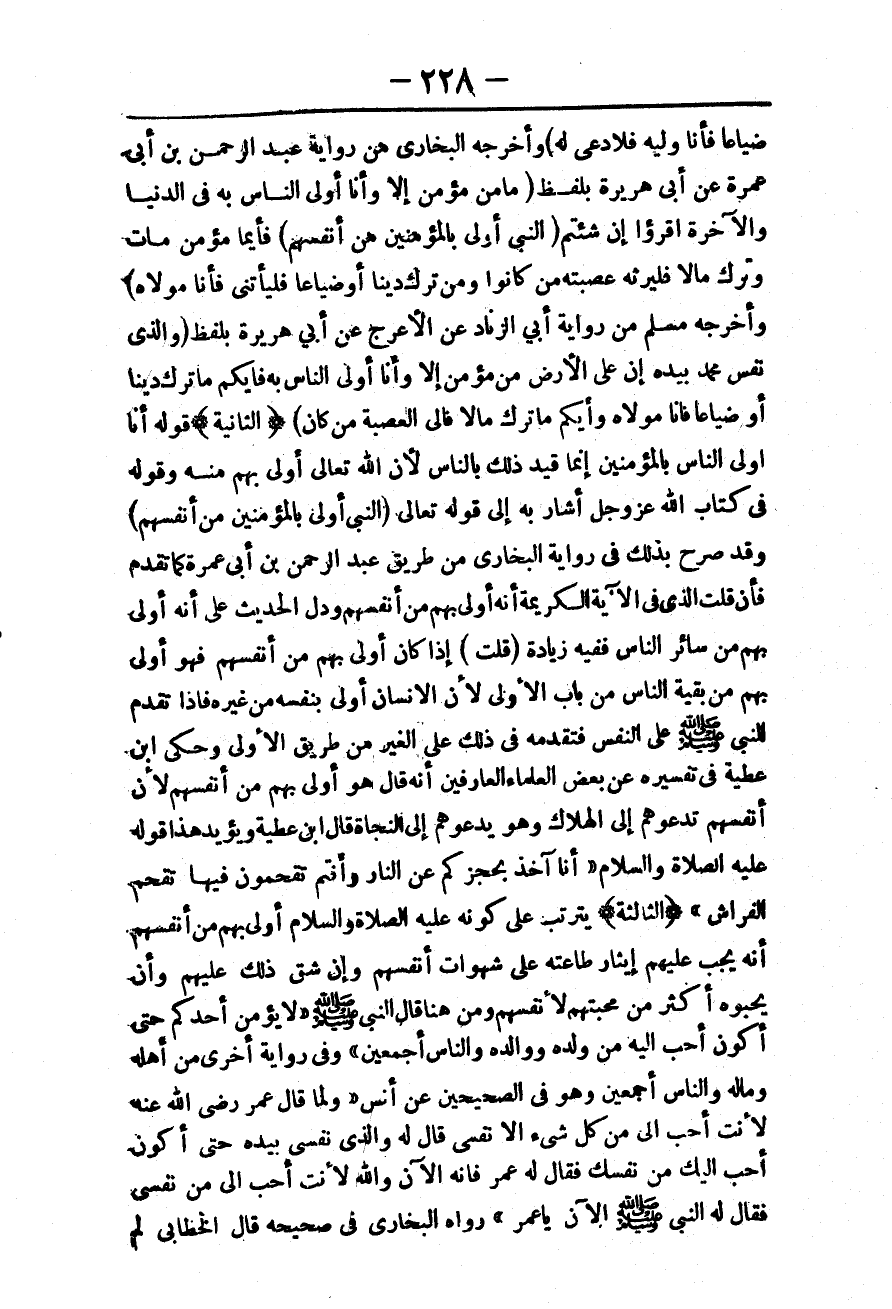 — ٢٢٨ —
ضياعا فأنا وليه فلادعى له) وأخرجه البخارى من رواية عبد الرحمن بن أبى
عمرة عن أبى هريرة بلفظ ( مامن مؤمن إلا وأنا أولى الناس به فى الدنيا
والآخرة اقرؤا إن شئتم ( النبي أولى بالمؤمنين من أنفسهم ) فأيما مؤمن مات
وترك مالا فليرثه عصبته من كانوا ومن ترك دينا أوضياعا فليأتنى فأنا مولاه )
وأخرجه مسلم من رواية أبي الزناد عن الأعرج عن أبي هريرة بلفظ (والذى
نفس محمد بيده إن على الأرض من مؤمن إلا وأنا أولى الناس به فايكم ماترك دينا
أو ضياعا فانا مولاه وأيكم ماترك مالا فالى العصبة من كان) ﴿ الثانية ﴾ قوله أنا
اولى الناس بالمؤمنين إنما قيد ذلك بالناس لأن الله تعالى أولى بهم منه وقوله
فى كتاب الله عزوجل أشار به إلى قوله تعالى (النبي أولى بالمؤمنين من أنفسهم)
وقد صرح بذلك فى رواية البخارى من طريق عبد الرحمن بن أبى عمرة كما تقدم
فأن قلت الذى فى الآية الكريمة أنه أولى بهم من أنفسهم ودل الحديث على أنه أولى
بهم من سائر الناس ففيه زيادة (قلت ) إذا كان أولى بهم من أنفسهم فهو أولى
بهم من بقية الناس من باب الأولى لأن الانسان أولى بنفسه من غيره فاذا تقدم
النبي ﷺ على النفس فتقدمه فى ذلك على الغير من طريق الأولى وحكى ابن
عطية فى تفسيره عن بعض العلماء العارفين أنه قال هو أولى بهم من أنفسهم لأن
أنفسهم تدعوهم إلى الهلاك وهو يدعوهم إلى النجاة قال ابن عطية ويؤيد هذا قوله
عليه الصلاة والسلام « أنا آخذ بحجزكم عن النار وأنتم تقحمون فيها تقحم
الفراش » ﴿الثالثة﴾ يترتب على كونه عليه الصلاة والسلام أولى بهم من أنفسهم
أنه يجب عليهم إيثار طاعته على شهوات أنفسهم وإن شق ذلك عليهم وأن
يحبوه أكثر من محبتهم لأنفسهم ومن هنا قال النبي ﷺ «لا يؤمن أحدكم حتى
أكون أحب اليه من ولده ووالده والناس أجمعين» وفى رواية أخرى من أهله
وماله والناس أجمعين وهو فى الصحيحين عن أنس « ولما قال عمر رضى الله عنه
لأنت أحب الى من كل شىء الا نفسى قال له والذى نفسى بيده حتى أكون
أحب اليك من نفسك فقال له عمر فانه الآن والله لأنت أحب الى من نفسى
فقال له النبي ﷺ الآن ياعمر » رواه البخارى فى صحيحه قال الخطابى لم